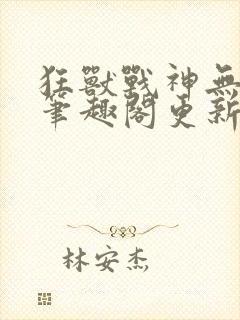 狂獸戰神無
筆趣閣更新
林安杰